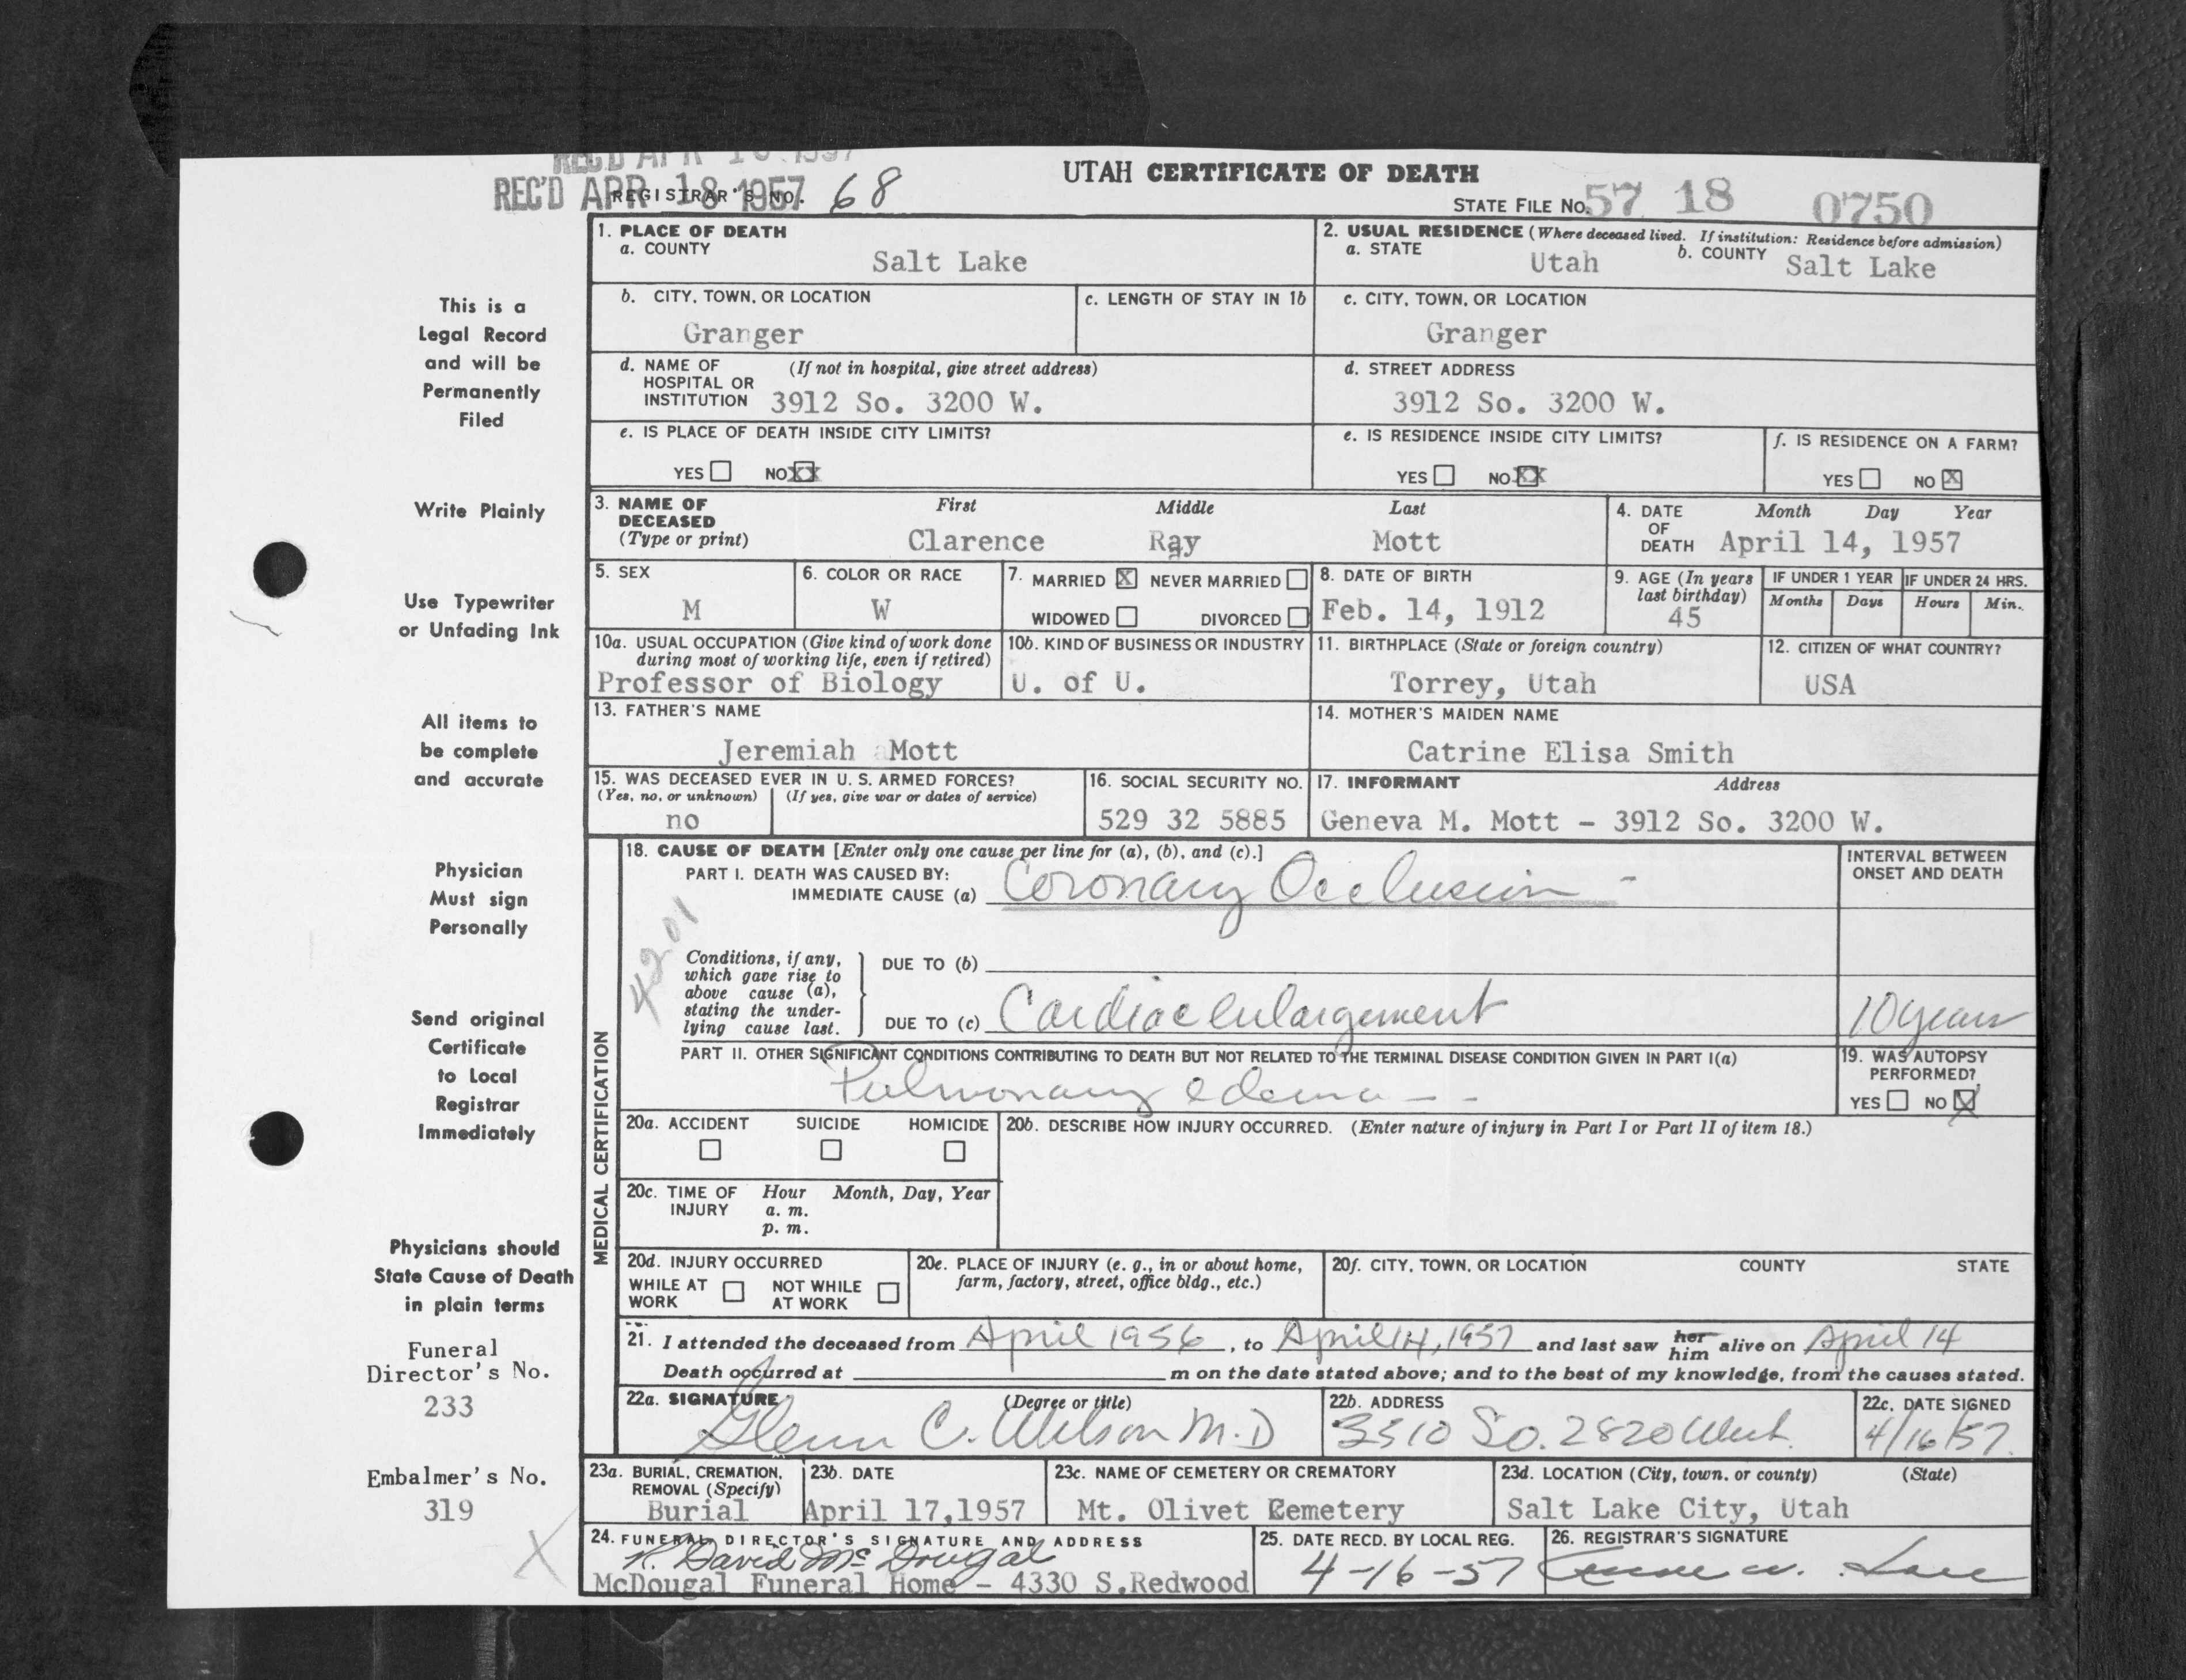 REC'D APR 18 1957
REGISTRAR'S NO. 68
UTAH CERTIFICATE OF DEATH
STATE FILE NO. 57 18 0750
This is a
Legal Record
and will be
Permanently
Filed
Write Plainly
Use Typewriter
or Unfading Ink
All items to
be complete
and accurate
Physician
Must sign
Personally
Send original
Certificate
to Local
Registrar
Immediately
Physicians should
State Cause of Death
in plain terms
Funeral
Director's No.
233
Embalmer's No.
319
1. PLACE OF DEATH
a. COUNTY
Salt Lake
2. USUAL RESIDENCE (Where deceased lived. If institution: Residence before admission)
a. STATE Utah b. COUNTY Salt Lake
b. CITY, TOWN, OR LOCATION
Granger
c. LENGTH OF STAY IN 1b
c. CITY, TOWN, OR LOCATION
Granger
d. NAME OF (If not in hospital, give street address)
HOSPITAL OR
INSTITUTION 3912 So. 3200 W.
d. STREET ADDRESS
3912 So. 3200 W.
e. IS PLACE OF DEATH INSIDE CITY LIMITS?
YES NO XX
e. IS RESIDENCE INSIDE CITY LIMITS?
YES NO XX
f. IS RESIDENCE ON A FARM?
YES NO X
3. NAME OF First Middle Last
DECEASED
(Type or print) Clarence Ray Mott
4. DATE Month Day Year
OF
DEATH April 14, 1957
5. SEX
M
6. COLOR OR RACE
W
7. MARRIED X NEVER MARRIED
WIDOWED DIVORCED
8. DATE OF BIRTH
Feb. 14, 1912
9. AGE (In years
last birthday)
45
IF UNDER 1 YEAR
Months Days
IF UNDER 24 HRS.
Hours Min.
10a. USUAL OCCUPATION (Give kind of work done
during most of working life, even if retired)
Professor of Biology
10b. KIND OF BUSINESS OR INDUSTRY
U. of U.
11. BIRTHPLACE (State or foreign country)
Torrey, Utah
12. CITIZEN OF WHAT COUNTRY?
USA
13. FATHER'S NAME
Jeremiah Mott
14. MOTHER'S MAIDEN NAME
Catrine Elisa Smith
15. WAS DECEASED EVER IN U. S. ARMED FORCES?
(Yes, no, or unknown) (If yes, give war or dates of service)
no
16. SOCIAL SECURITY NO.
529 32 5885
17. INFORMANT Address
Geneva M. Mott - 3912 So. 3200 W.
MEDICAL CERTIFICATION
18. CAUSE OF DEATH [Enter only one cause per line for (a), (b), and (c).]
PART I. DEATH WAS CAUSED BY:
IMMEDIATE CAUSE (a) Coronary Occlusion -
INTERVAL BETWEEN
ONSET AND DEATH
4201
Conditions, if any,
which gave rise to
above cause (a),
stating the under-
lying cause last.
DUE TO (b)
DUE TO (c) Cardiac enlargement
10 years
PART II. OTHER SIGNIFICANT CONDITIONS CONTRIBUTING TO DEATH BUT NOT RELATED TO THE TERMINAL DISEASE CONDITION GIVEN IN PART I(a)
Pulmonary edema - -
19. WAS AUTOPSY
PERFORMED?
YES NO X
20a. ACCIDENT SUICIDE HOMICIDE
20b. DESCRIBE HOW INJURY OCCURRED. (Enter nature of injury in Part I or Part II of item 18.)
20c. TIME OF Hour Month, Day, Year
INJURY a. m.
p. m.
20d. INJURY OCCURRED
WHILE AT WORK NOT WHILE AT WORK
20e. PLACE OF INJURY (e. g., in or about home,
farm, factory, street, office bldg., etc.)
20f. CITY, TOWN, OR LOCATION COUNTY STATE
21. I attended the deceased from April 1956, to April 14, 1957 and last saw her him alive on April 14
Death occurred at m on the date stated above; and to the best of my knowledge, from the causes stated.
22a. SIGNATURE (Degree or title)
Glenn C. Wilson M.D
22b. ADDRESS
3510 So. 2820 West.
22c. DATE SIGNED
4/16/57.
23a. BURIAL, CREMATION,
REMOVAL (Specify)
Burial
23b. DATE
April 17,1957
23c. NAME OF CEMETERY OR CREMATORY
Mt. Olivet Cemetery
23d. LOCATION (City, town, or county) (State)
Salt Lake City, Utah
24. FUNERAL DIRECTOR'S SIGNATURE AND ADDRESS
R. David McDougal
McDougal Funeral Home - 4330 S.Redwood
25. DATE RECD. BY LOCAL REG.
4-16-57
26. REGISTRAR'S SIGNATURE